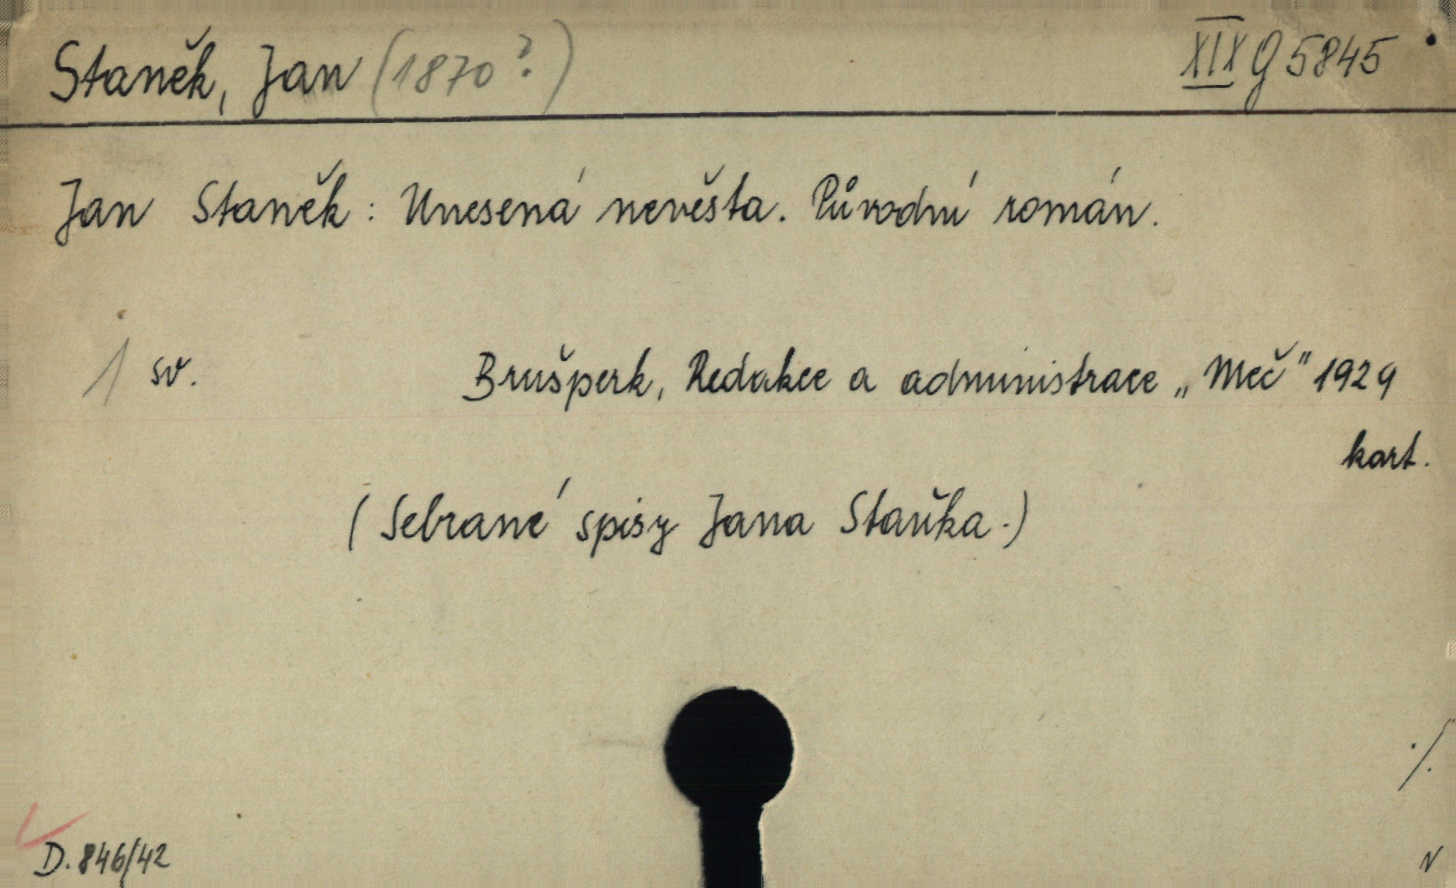 Staněk, Jan (1870?)
XIX G 5845
Jan Staněk: Unesená nevěsta. Původní román.
1 sv.
Brušperk, Redakce a administrace „Meč" 1929
kart.
(Sebrané spisy Jana Staňka.)
./.
D. 846/42
N